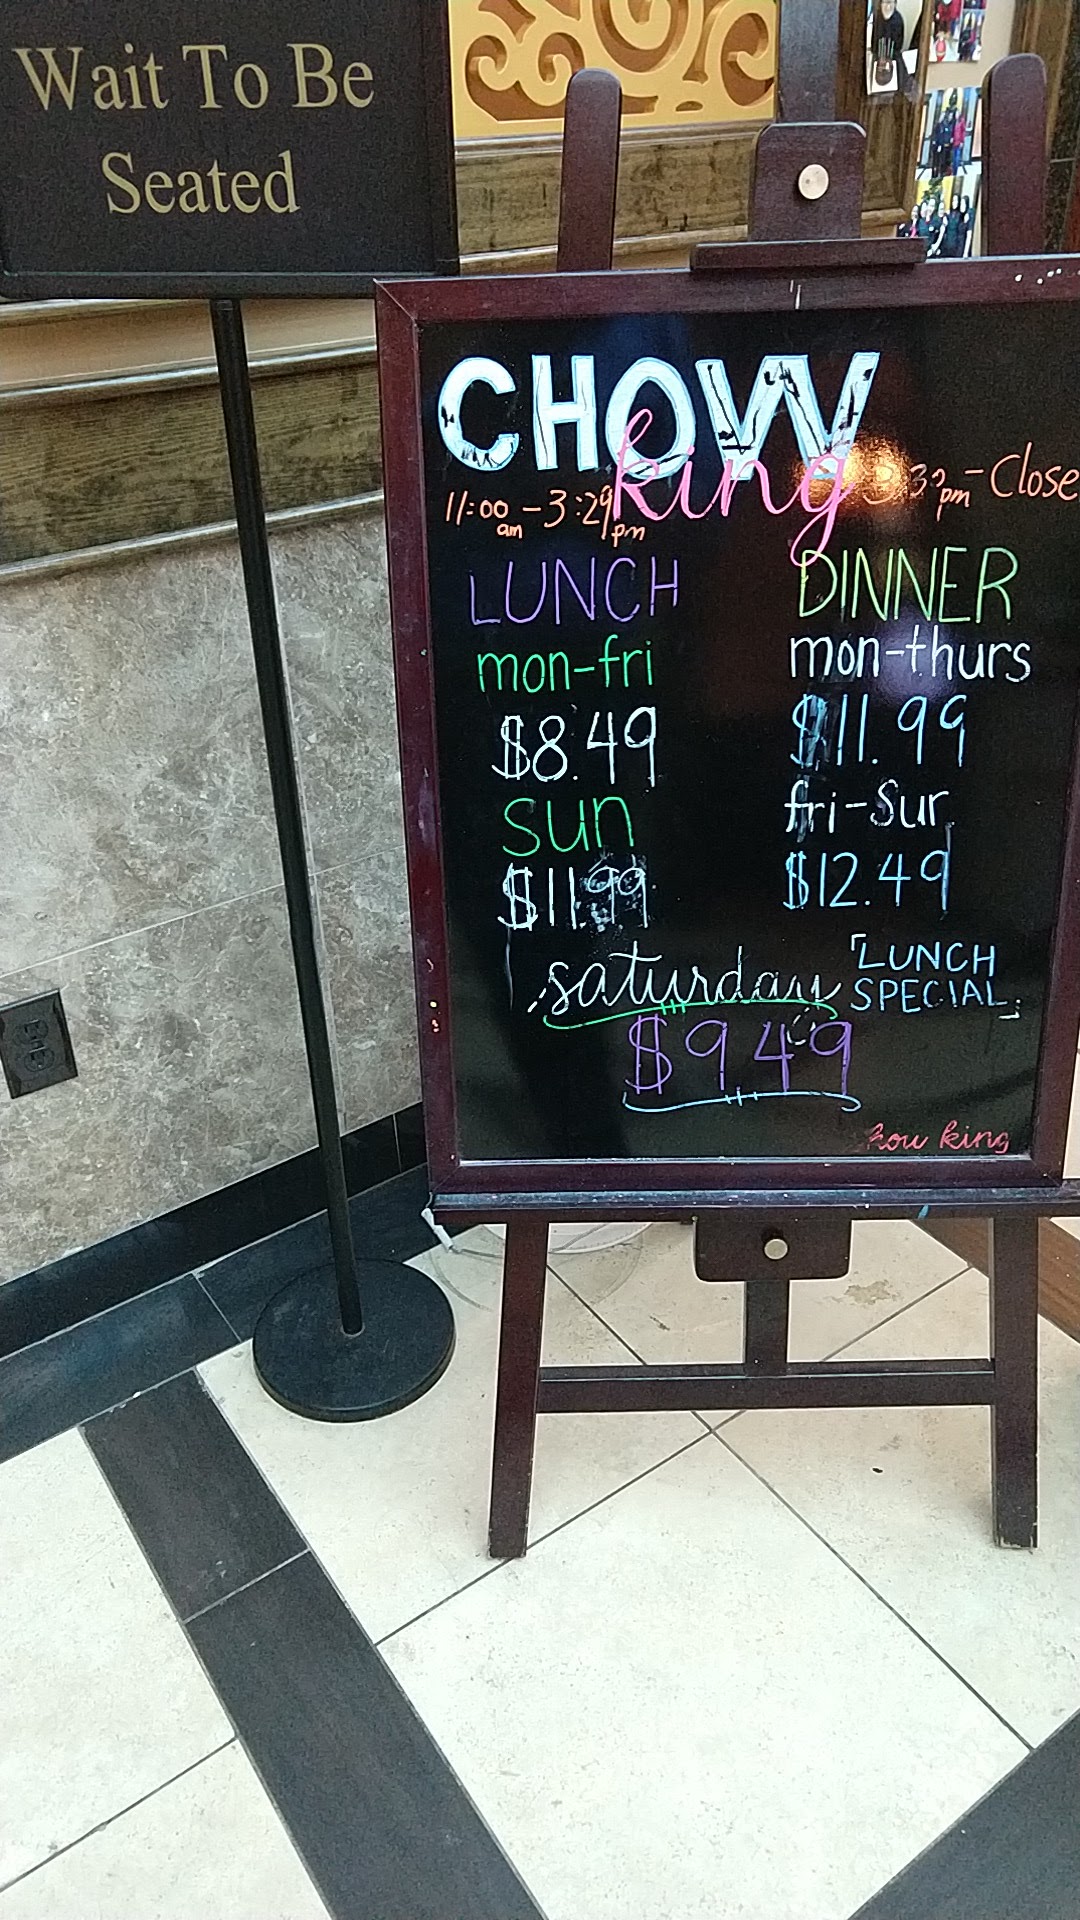 Wait To Be
Seated
CHOW
king
11:00am-3:29pm
3:30pm-Close
LUNCH
mon-fri
$8.49
sun
$11.99
DINNER
mon-thurs
$11.99
fri-Sun
$12.49
saturday
「LUNCH
SPECIAL」
$9.49
king